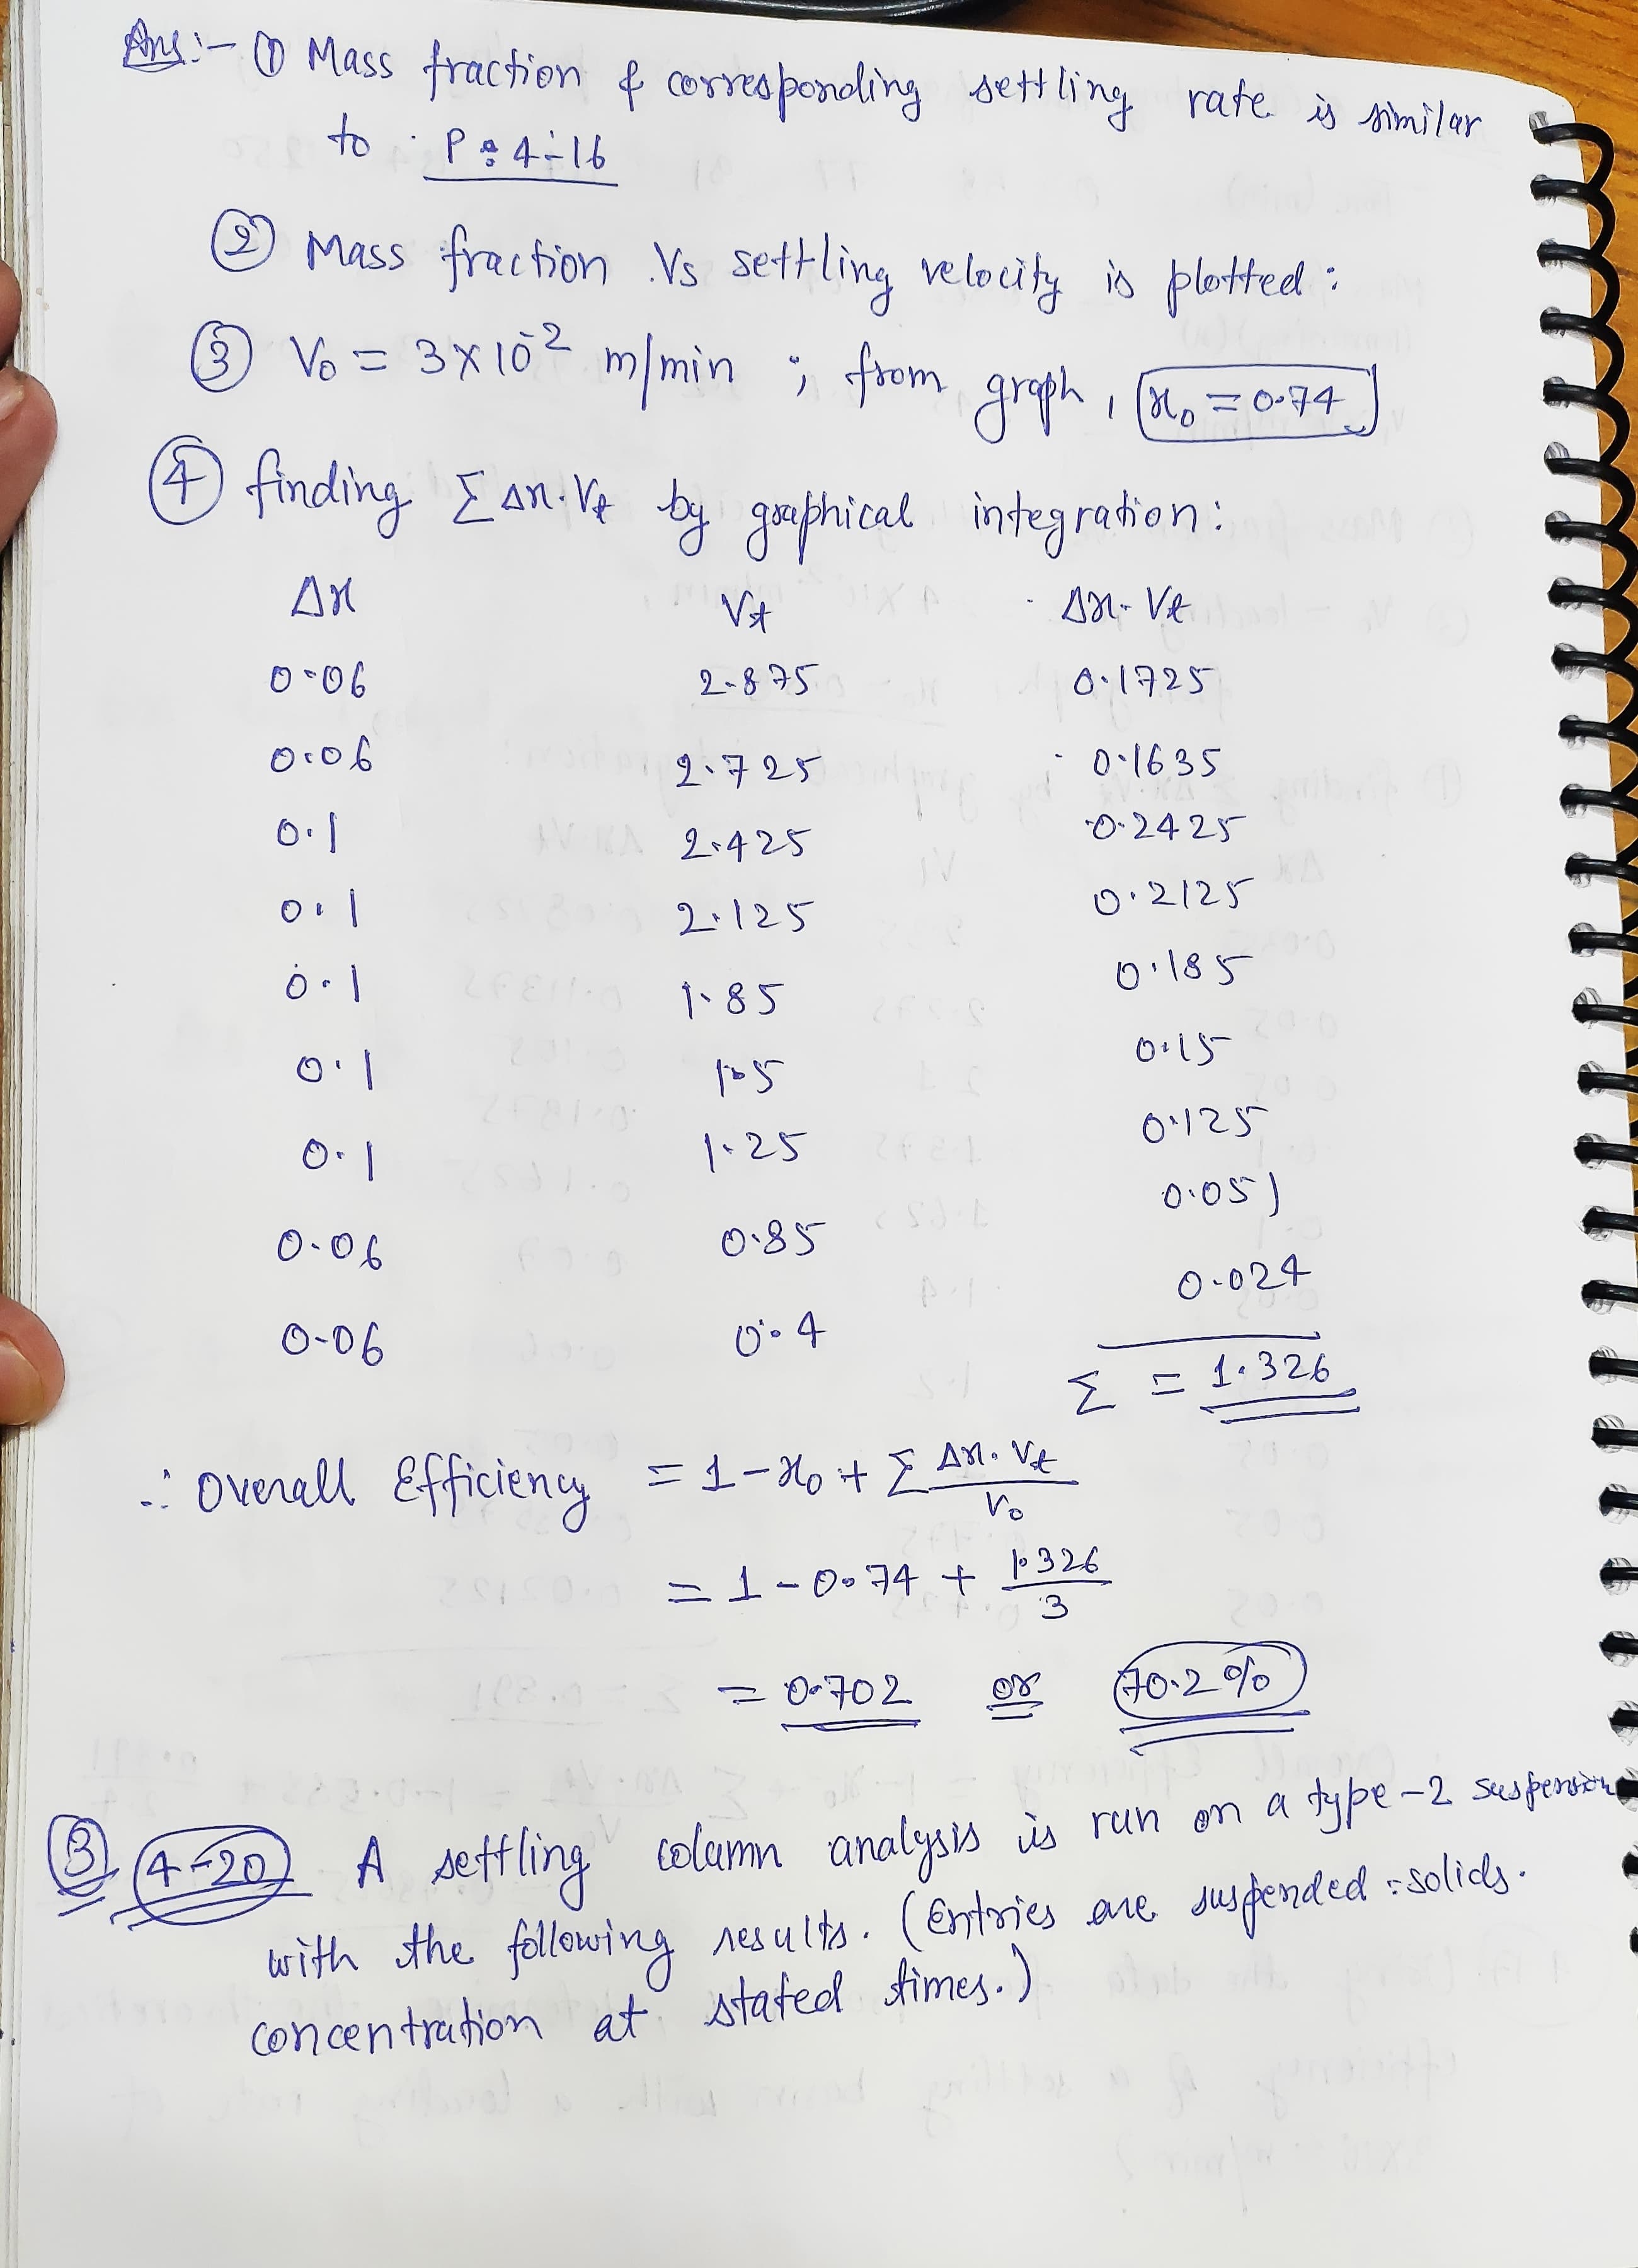 Ans:- ① Mass fraction & corresponding settling rate is similar
to P: 4-16
② Mass fraction Vs settling velocity is plotted:
③ V₀ = 3×10⁻² m/min ; from graph, x₀ = 0.74
④ finding Σ Δx·Vt by graphical integration:
Δx Vt Δx·Vt
0.06 2.875 0.1725
0.06 2.725 0.1635
0.1 2.425 0.2425
0.1 2.125 0.2125
0.1 1.85 0.185
0.1 1.5 0.15
0.1 1.25 0.125
0.06 0.85 0.051
0.06 0.4 0.024
Σ = 1.326
∴ Overall Efficiency = 1 - x₀ + Σ Δx·Vt / V₀
= 1 - 0.74 + 1.326 / 3
= 0.702 or 70.2%
③ 4-20 A settling column analysis is run on a type-2 suspension
with the following results. (Entries are suspended-solids
concentration at stated times.)